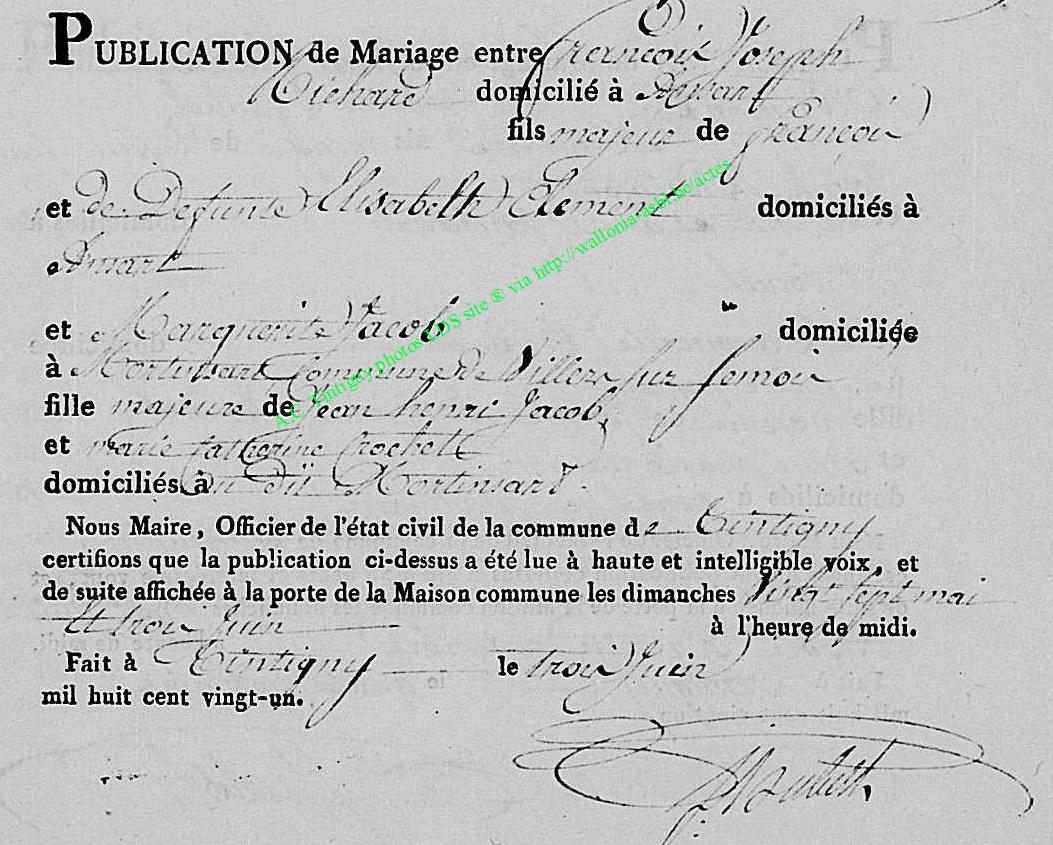 PUBLICATION de Mariage entre François Joseph
Richard domicilié à
fils majeur de François
et de Defunte Elisabeth Clement domiciliés à
et Marguerite Jacob domiciliée
à Mortinsart Commune de Villers sur Semois
fille majeure de Jean henri Jacob
et marie Catherine Crochet
domiciliés à dit Mortinsart.
Nous Maire, Officier de l'état civil de la commune de Tintigny
certifions que la publication ci-dessus a été lue à haute et intelligible voix, et
de suite affichée à la porte de la Maison commune les dimanches Vingt sept mai
Et trois Juin à l'heure de midi.
Fait à Tintigny le trois Juin
mil huit cent vingt-un.
A.C. Tintigny photos LDS site ® via http://wallonia-asbl.be/actes